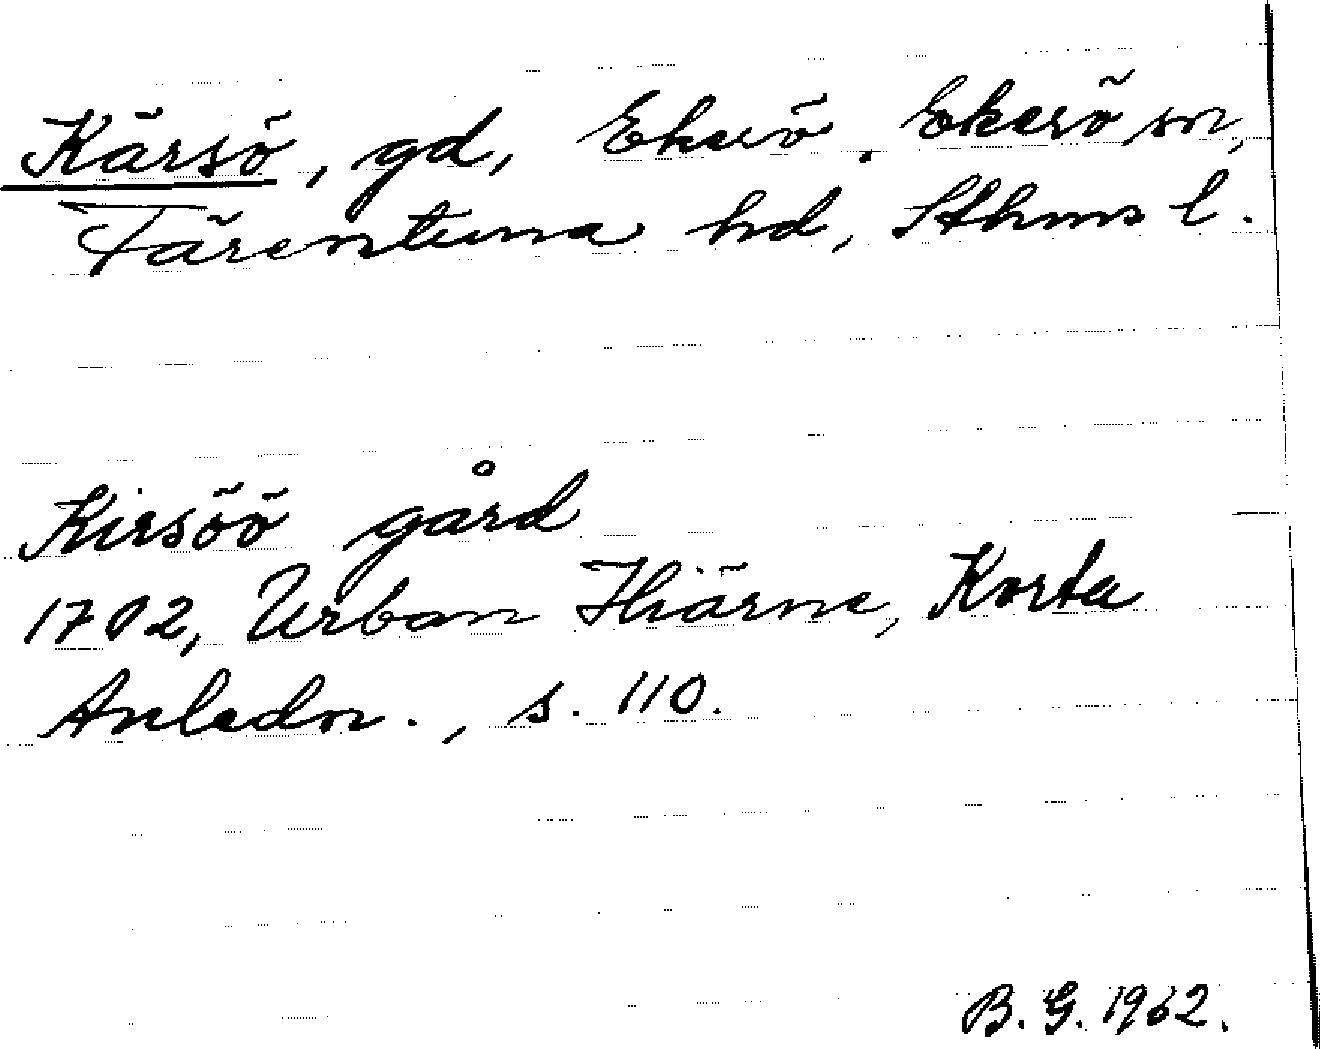 Kärsö, gd, Ekerö, Ekerö sn,
Färentuna hd, Sthms l.
Kirsöö gård
1702, Urban Hiärne, Korta
Anledn., s. 110.
B. G. 1962.